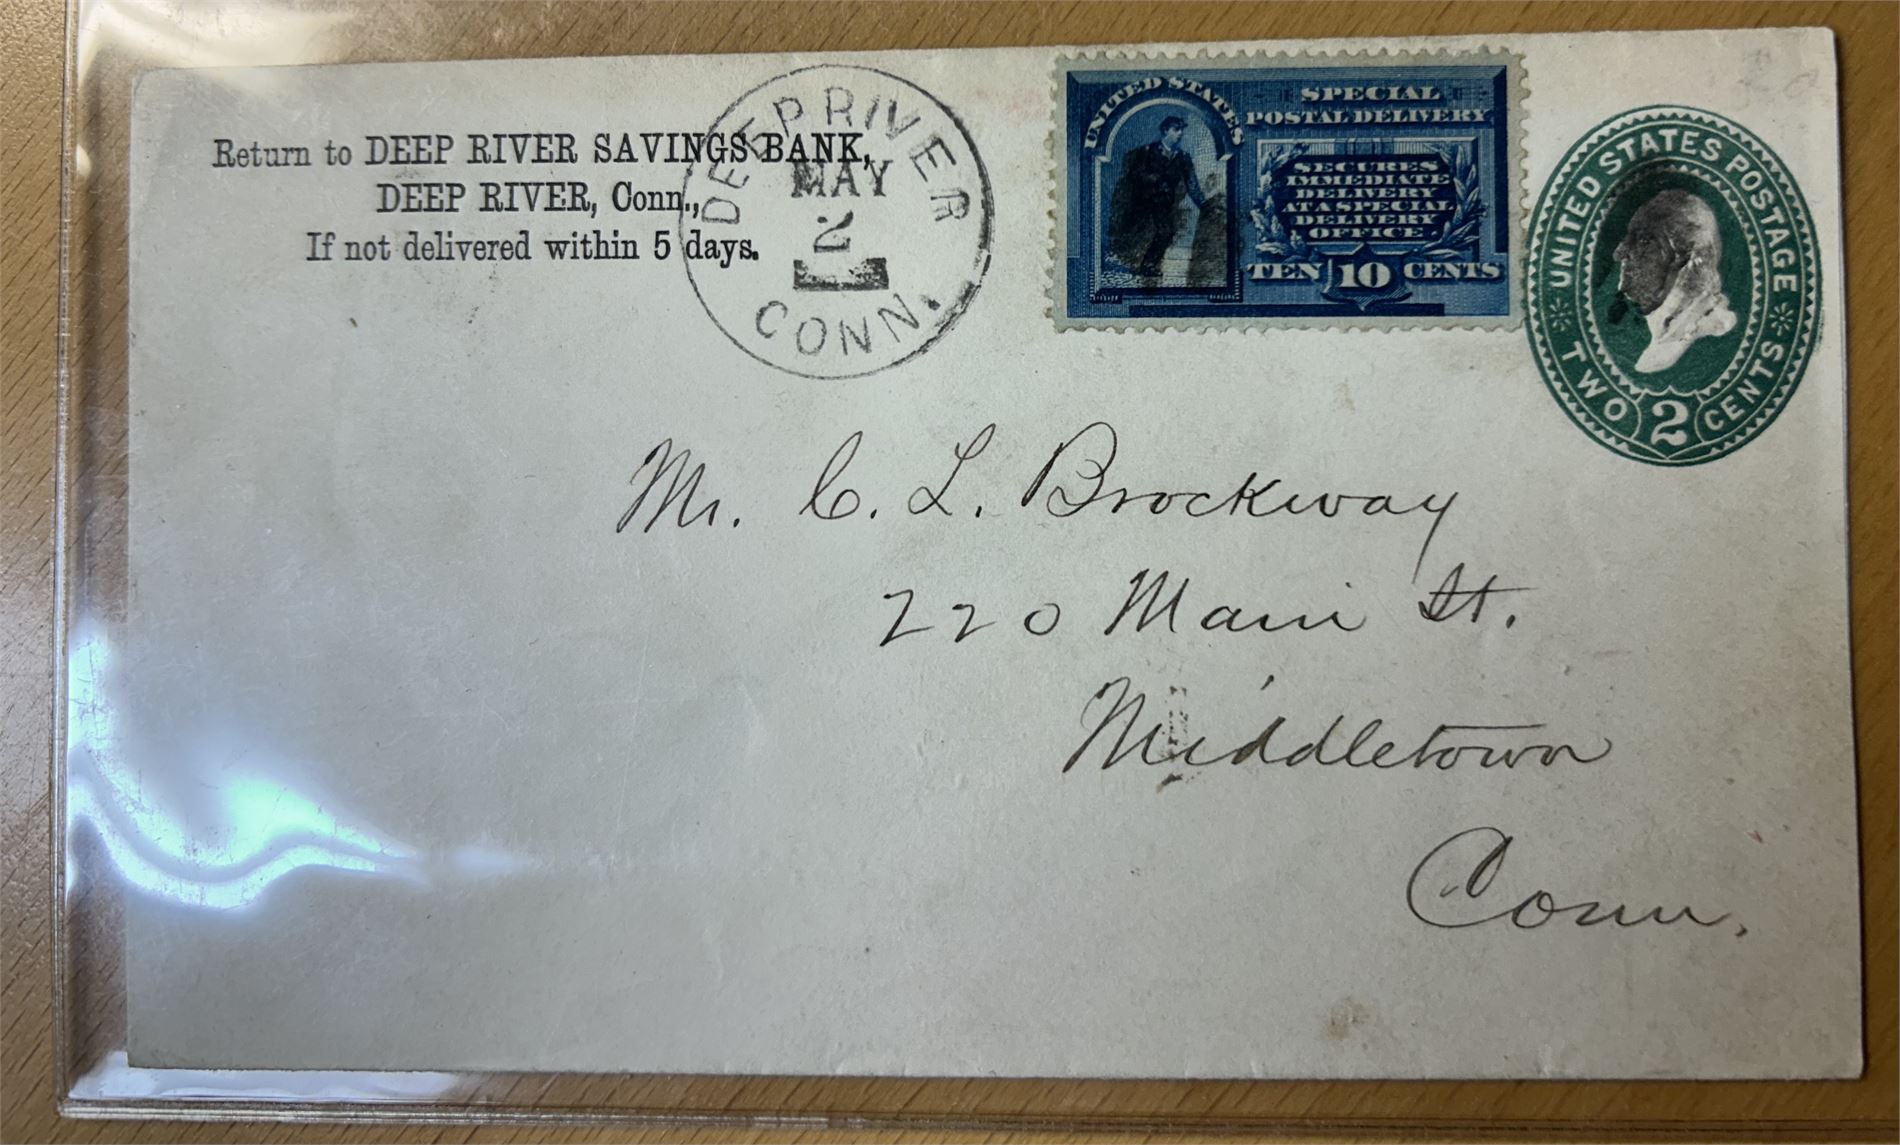 Return to DEEP RIVER SAVINGS BANK,
DEEP RIVER, Conn.,
If not delivered within 5 days.
DEEP RIVER
MAY
2
CONN.
UNITED STATES
SPECIAL
POSTAL DELIVERY
SECURES
IMMEDIATE
DELIVERY
AT A SPECIAL
DELIVERY
OFFICE
TEN 10 CENTS
UNITED STATES POSTAGE
TWO 2 CENTS
Mr. C. L. Brockway
220 Main St.
Middletown
Conn.